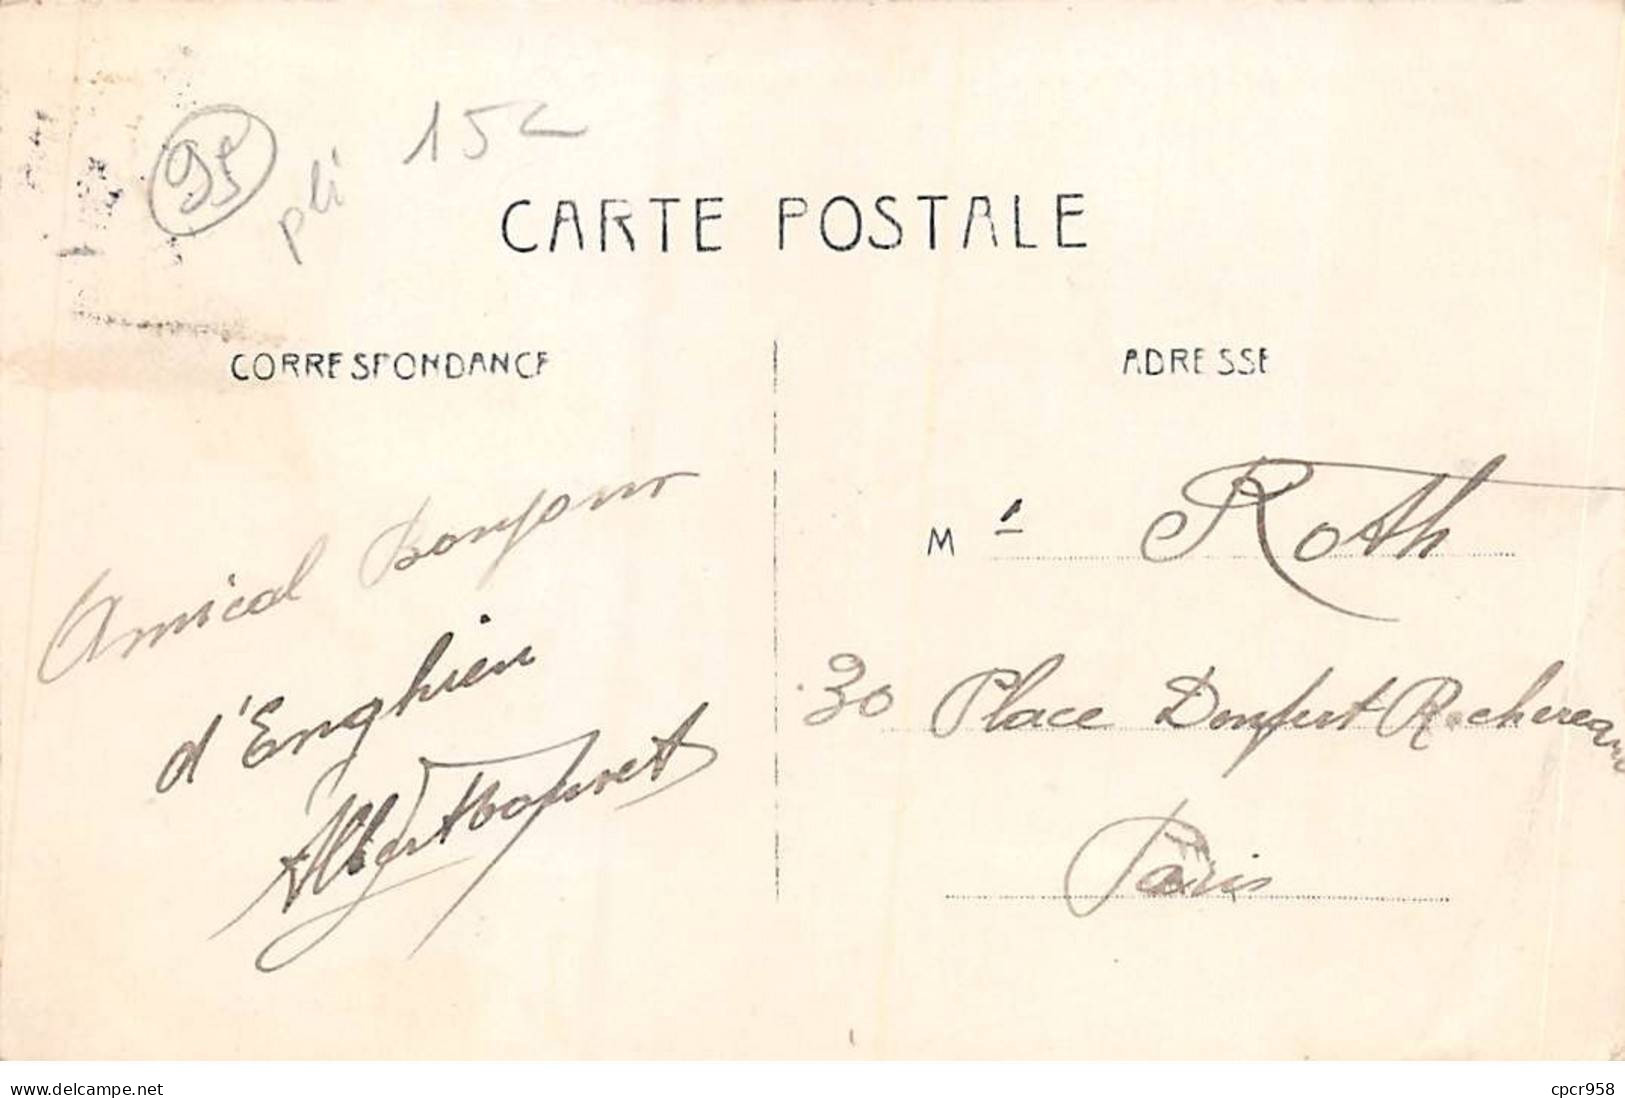 95
pli
15
CARTE POSTALE
CORRESPONDANCE
ADRESSE
Amical Bonjour
d'Enghien
Albert
M r Roth
30 Place Denfert Rochereau
Paris
delcampe.net
cpcr958